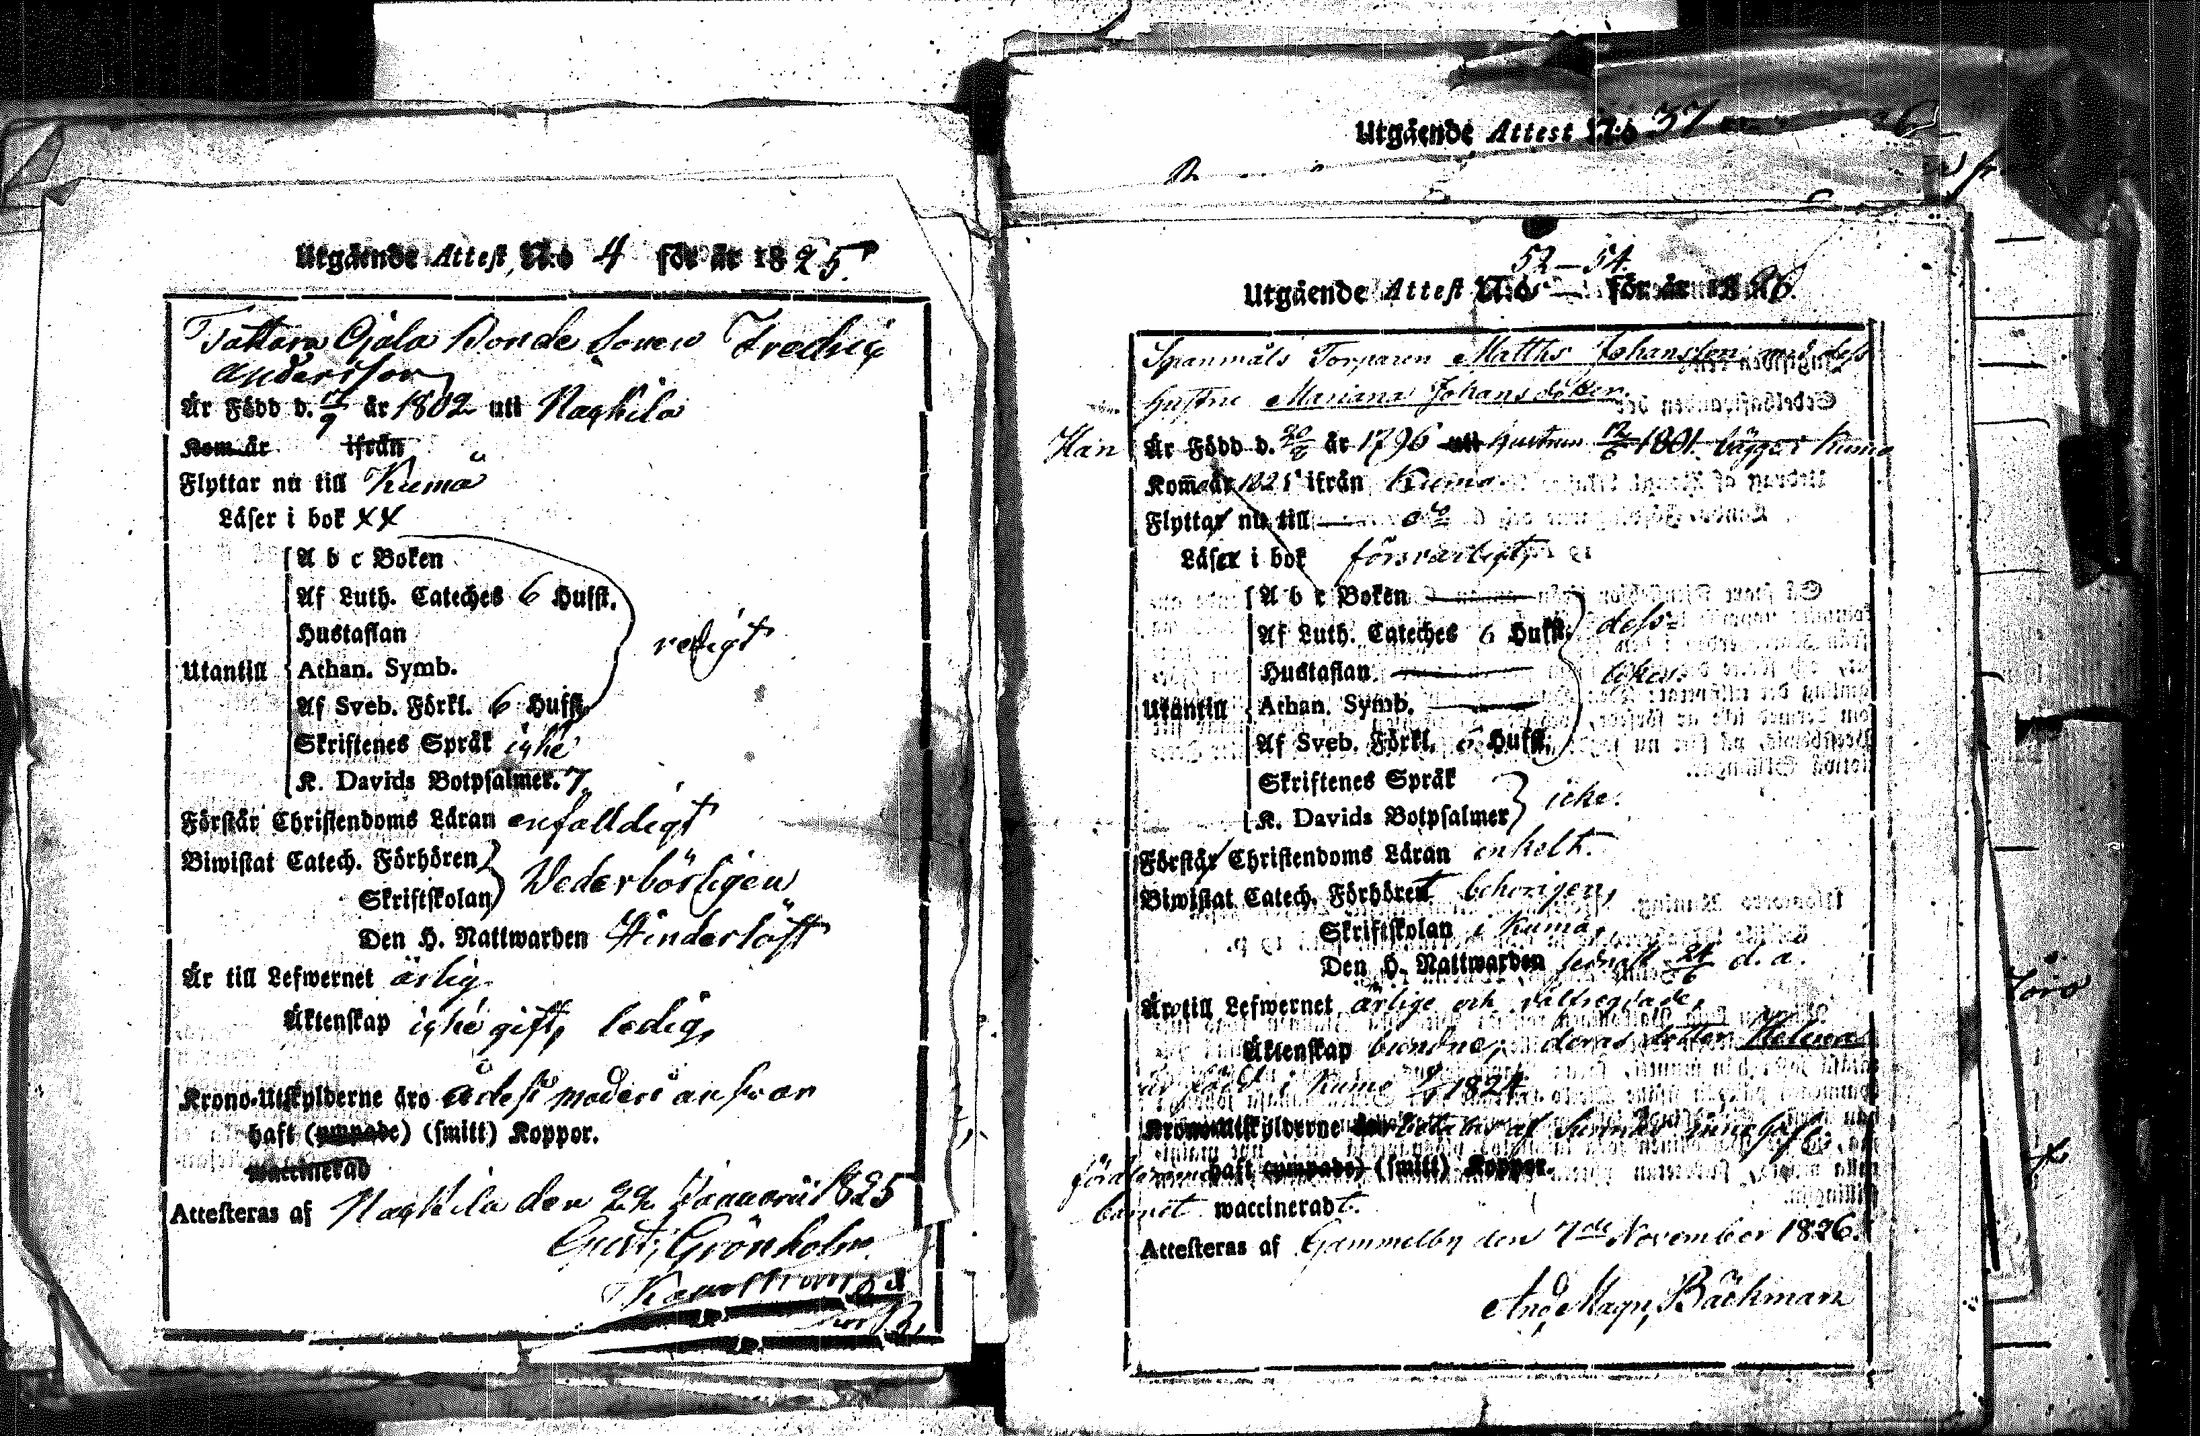 Utgående Attest N:o 4 för år 1825.
Tattara Ojala Bonde Sonen Fredric
Andersson
Är Född d. 17/9 år 1802 uti Nackila
Kom år ifrån
Flyttar nu till Kumo
Läser i bok XX
A b c Boken
Af Luth. Cateches 6 Hufst.
Hustaflan
Utantill Athan. Symb.
redigt
Af Sveb. Förkl. 6 Hufst.
Skriftenes Språk icke
K. Davids Botpsalmer. 7.
Förstår Christendoms Läran enfalldigt
Biwistat Catech. Förhören
Skriftskolan Wederbörligen
Den H. Nattwarden Hinderlöst
Är till Lefwernet ärlig.
Äktenskap icke gift, ledig,
Krono-Utskylderne äro å dess moders answar
haft (ympade) (smitt) Koppor.
waccinerad
Attesteras af Nackila den 22 Januarii 1825
Gust. Grönholm
Utgående Attest N:o 37
52–54
Utgående Attest N:o för år 1826.
Spanmåls Torparen Matths Johansson med dess
hustru Mariana Johansdotter
Han Är Född d. år 1796 uti hustrun 1801. bägge i Kumo
Kom år 1825 ifrån Kumo
Flyttar nu till do
Läser i bok försvarligt
A b c Boken
Af Luth. Cateches 6 Hufst. dess-
Hustaflan böken
Utantill Athan. Symb.
Af Sveb. Förkl. 6 Hufst.
Skriftenes Språk
icke.
K. Davids Botpsalmer
Förstår Christendoms Läran enkelt.
Biwistat Catech. Förhören behörigen,
Skriftskolan i Kumo,
Den H. Nattwarden sednast d. å.
Äro till Lefwernet ärlige och välfregdade,
Äktenskap bundne, deras dotter Helena
är född i Kumo 1824.
Krono-Utskylderne
haft (ympade) (smitt) Koppor.
barnet waccineradt.
Attesteras af Gammelby den 7de November 1826.
And. Magn. Bäckman